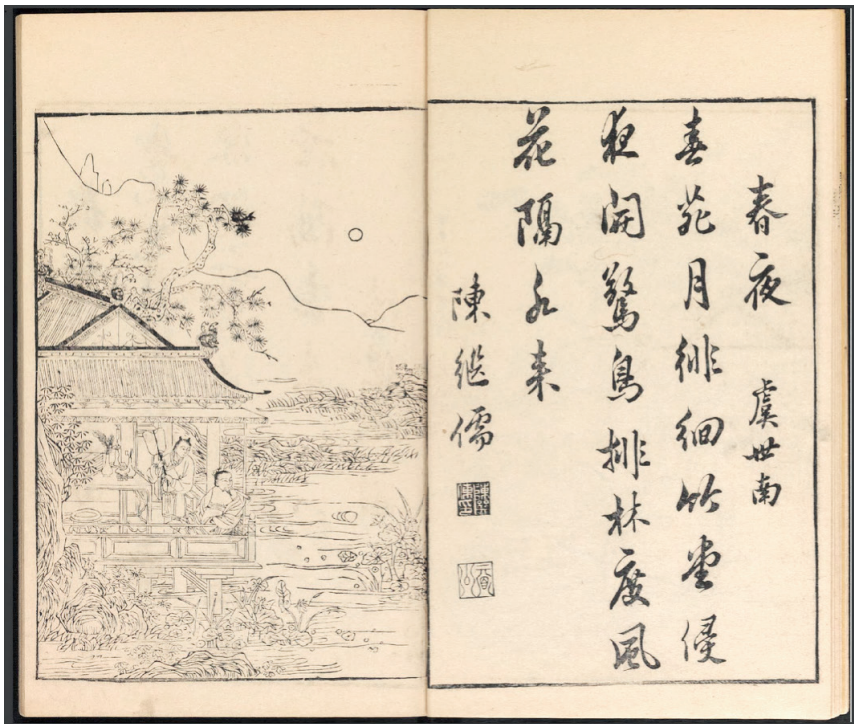 春夜
虞世南
春苑月徘徊竹堂侵
夜開驚鳥排林度風
花隔水来
陳継儒
眉公